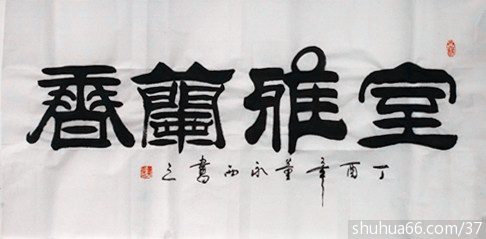 室雅蘭香
丁酉年董永西書之
shuhua66.com/37